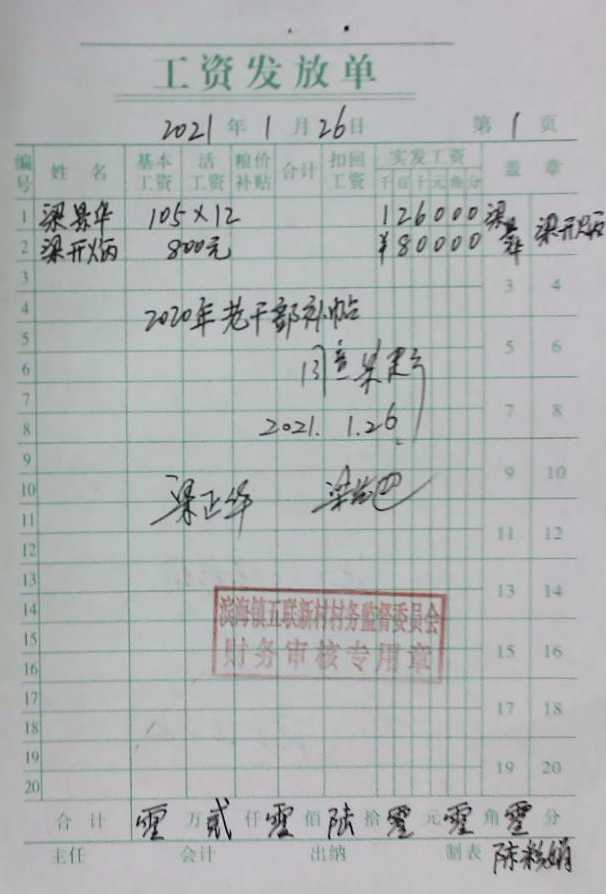 工资发放单
2021年1月26日 第1页
编号 姓名 基本工资 活工资 粮价补贴 合计 扣回工资 实发工资 千百十元角分 盖章
1 梁景华 105×12 126000 梁景华 梁开炳
2 梁开炳 800元 ¥80000
3 3 4
4 2020年老干部补帖
5 5 6
6 同意
7 7 8
8 2021.1.26
9 9 10
10 梁正华
11 11 12
12
13 13 14
14 滨海镇五联新村村务监督委员会
15 财务审核专用章 15 16
16
17 17 18
18
19 19 20
20
合计 零万贰仟零佰陆拾零元零角零分
主任 会计 出纳 制表 陈彩娟